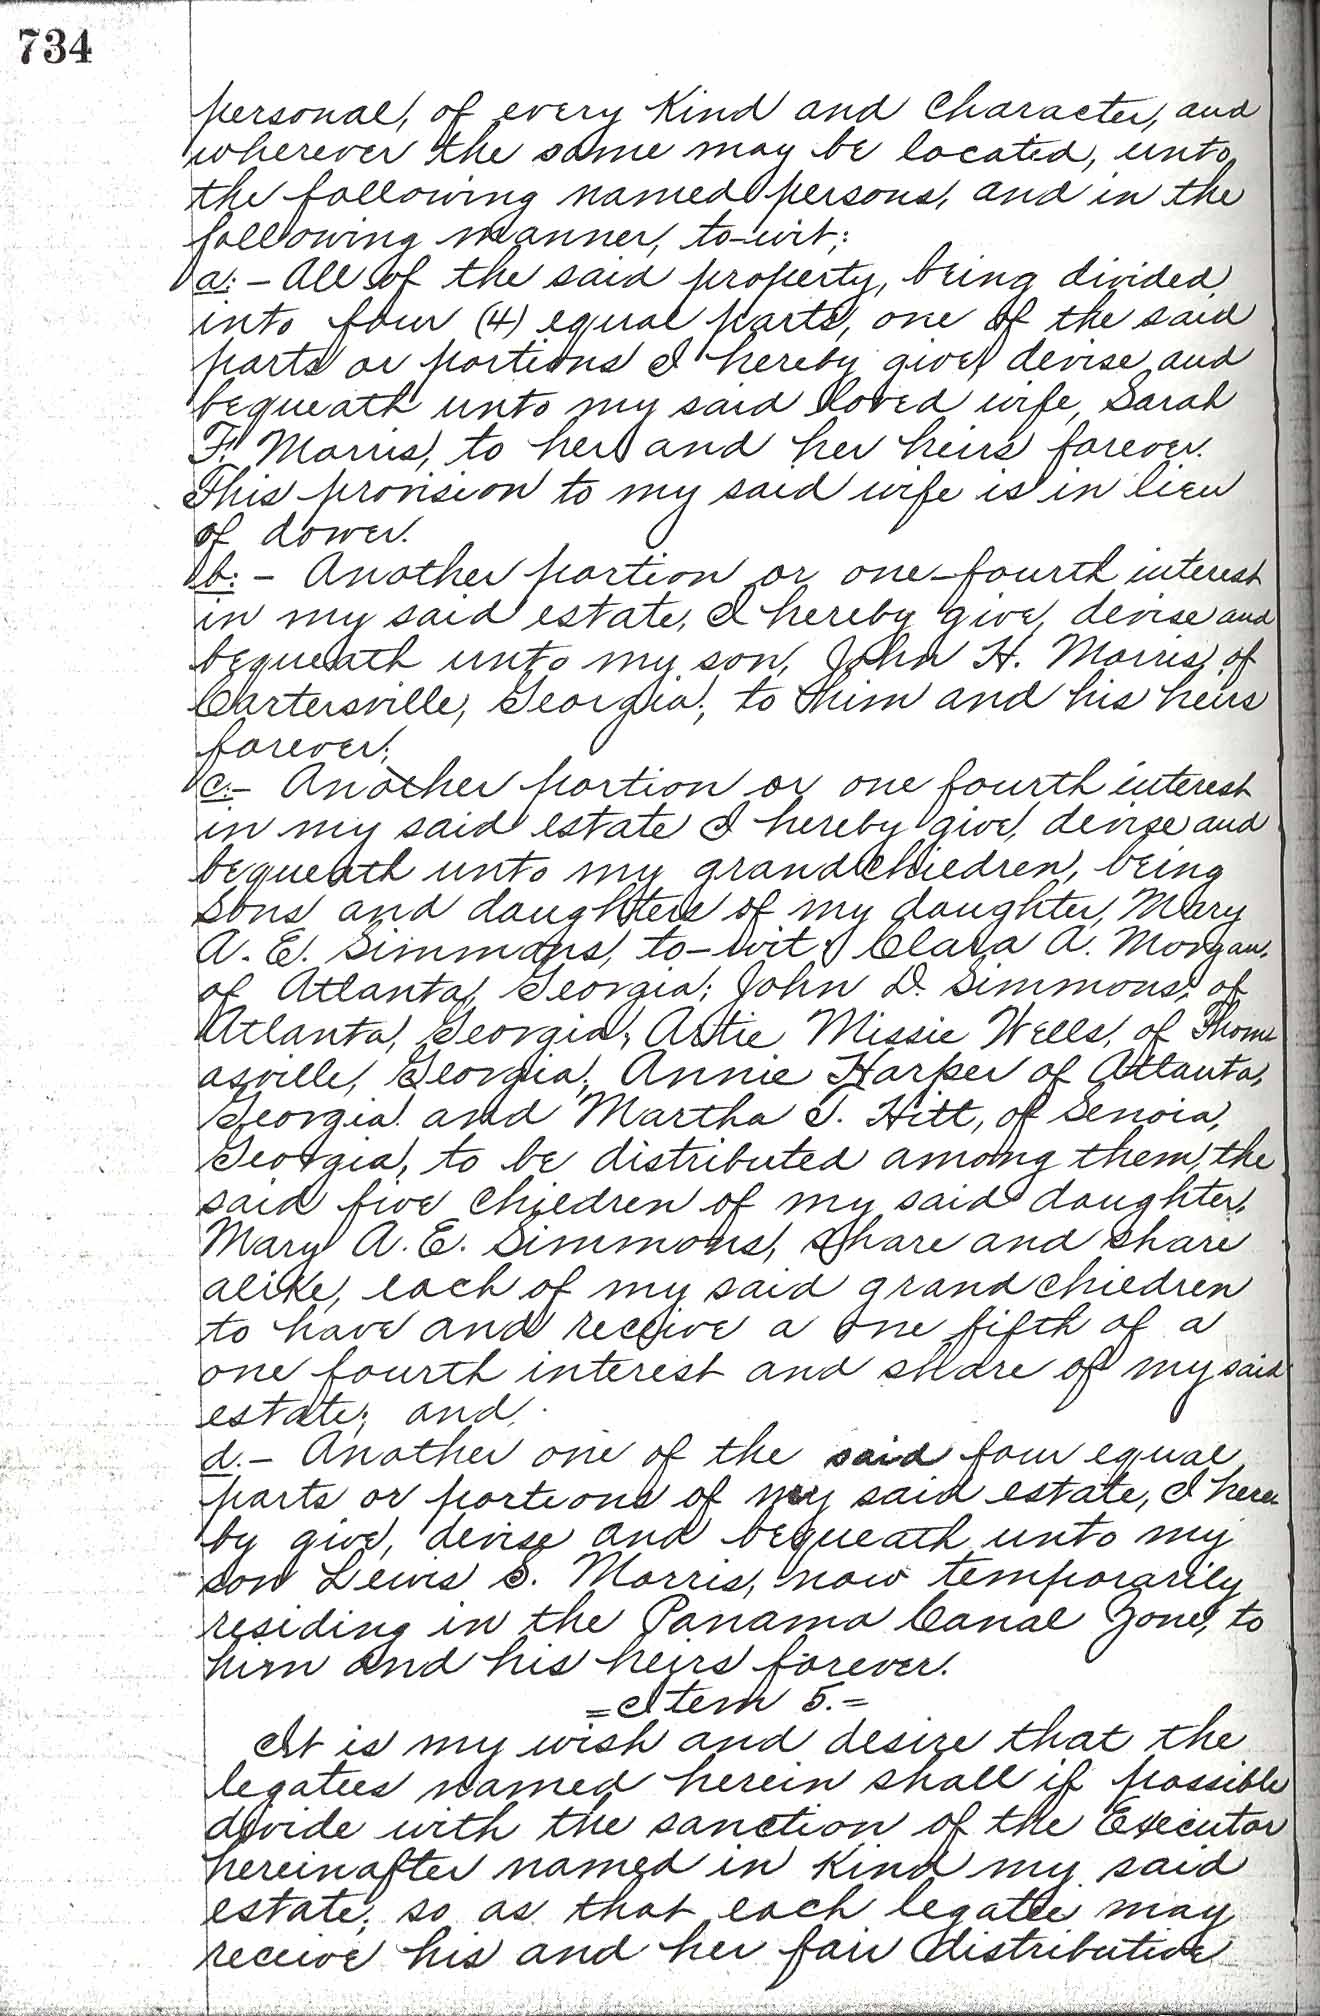 734
personal, of every kind and character, and
wherever the same may be located, unto
the following named persons, and in the
following manner, to-wit:
a:- All of the said property, being divided
into four (4) equal parts, one of the said
parts or portions I hereby give, devise and
bequeath unto my said loved wife, Sarah
F. Morris, to her and her heirs forever.
This provision to my said wife is in lieu
of dower.
b:- Another portion or one-fourth interest
in my said estate, I hereby give, devise and
bequeath unto my son, John H. Morris, of
Cartersville, Georgia, to him and his heirs
forever;
c:- Another portion or one fourth interest
in my said estate I hereby give, devise and
bequeath unto my grandchildren, being
sons and daughters of my daughter, Mary
A. E. Simmons, to-wit: Clara A. Morgan,
of Atlanta, Georgia; John D. Simmons, of
Atlanta, Georgia; Artie Missie Wells, of Thom
asville, Georgia; Annie Harper of Atlanta,
Georgia and Martha T. Hitt, of Senoia,
Georgia, to be distributed among them, the
said five children of my said daughter,
Mary A. E. Simmons, share and share
alike, each of my said grandchildren
to have and receive a one fifth of a
one fourth interest and share of my said
estate; and
d.- Another one of the said four equal
parts or portions of my said estate, I here-
by give, devise and bequeath unto my
son Lewis S. Morris, now temporarily
residing in the Panama Canal Zone, to
him and his heirs forever.
=Item 5.=
It is my wish and desire that the
legatees named herein shall if possible
divide with the sanction of the Executor
hereinafter named in kind my said
estate, so as that each legatee may
receive his and her fair distributive